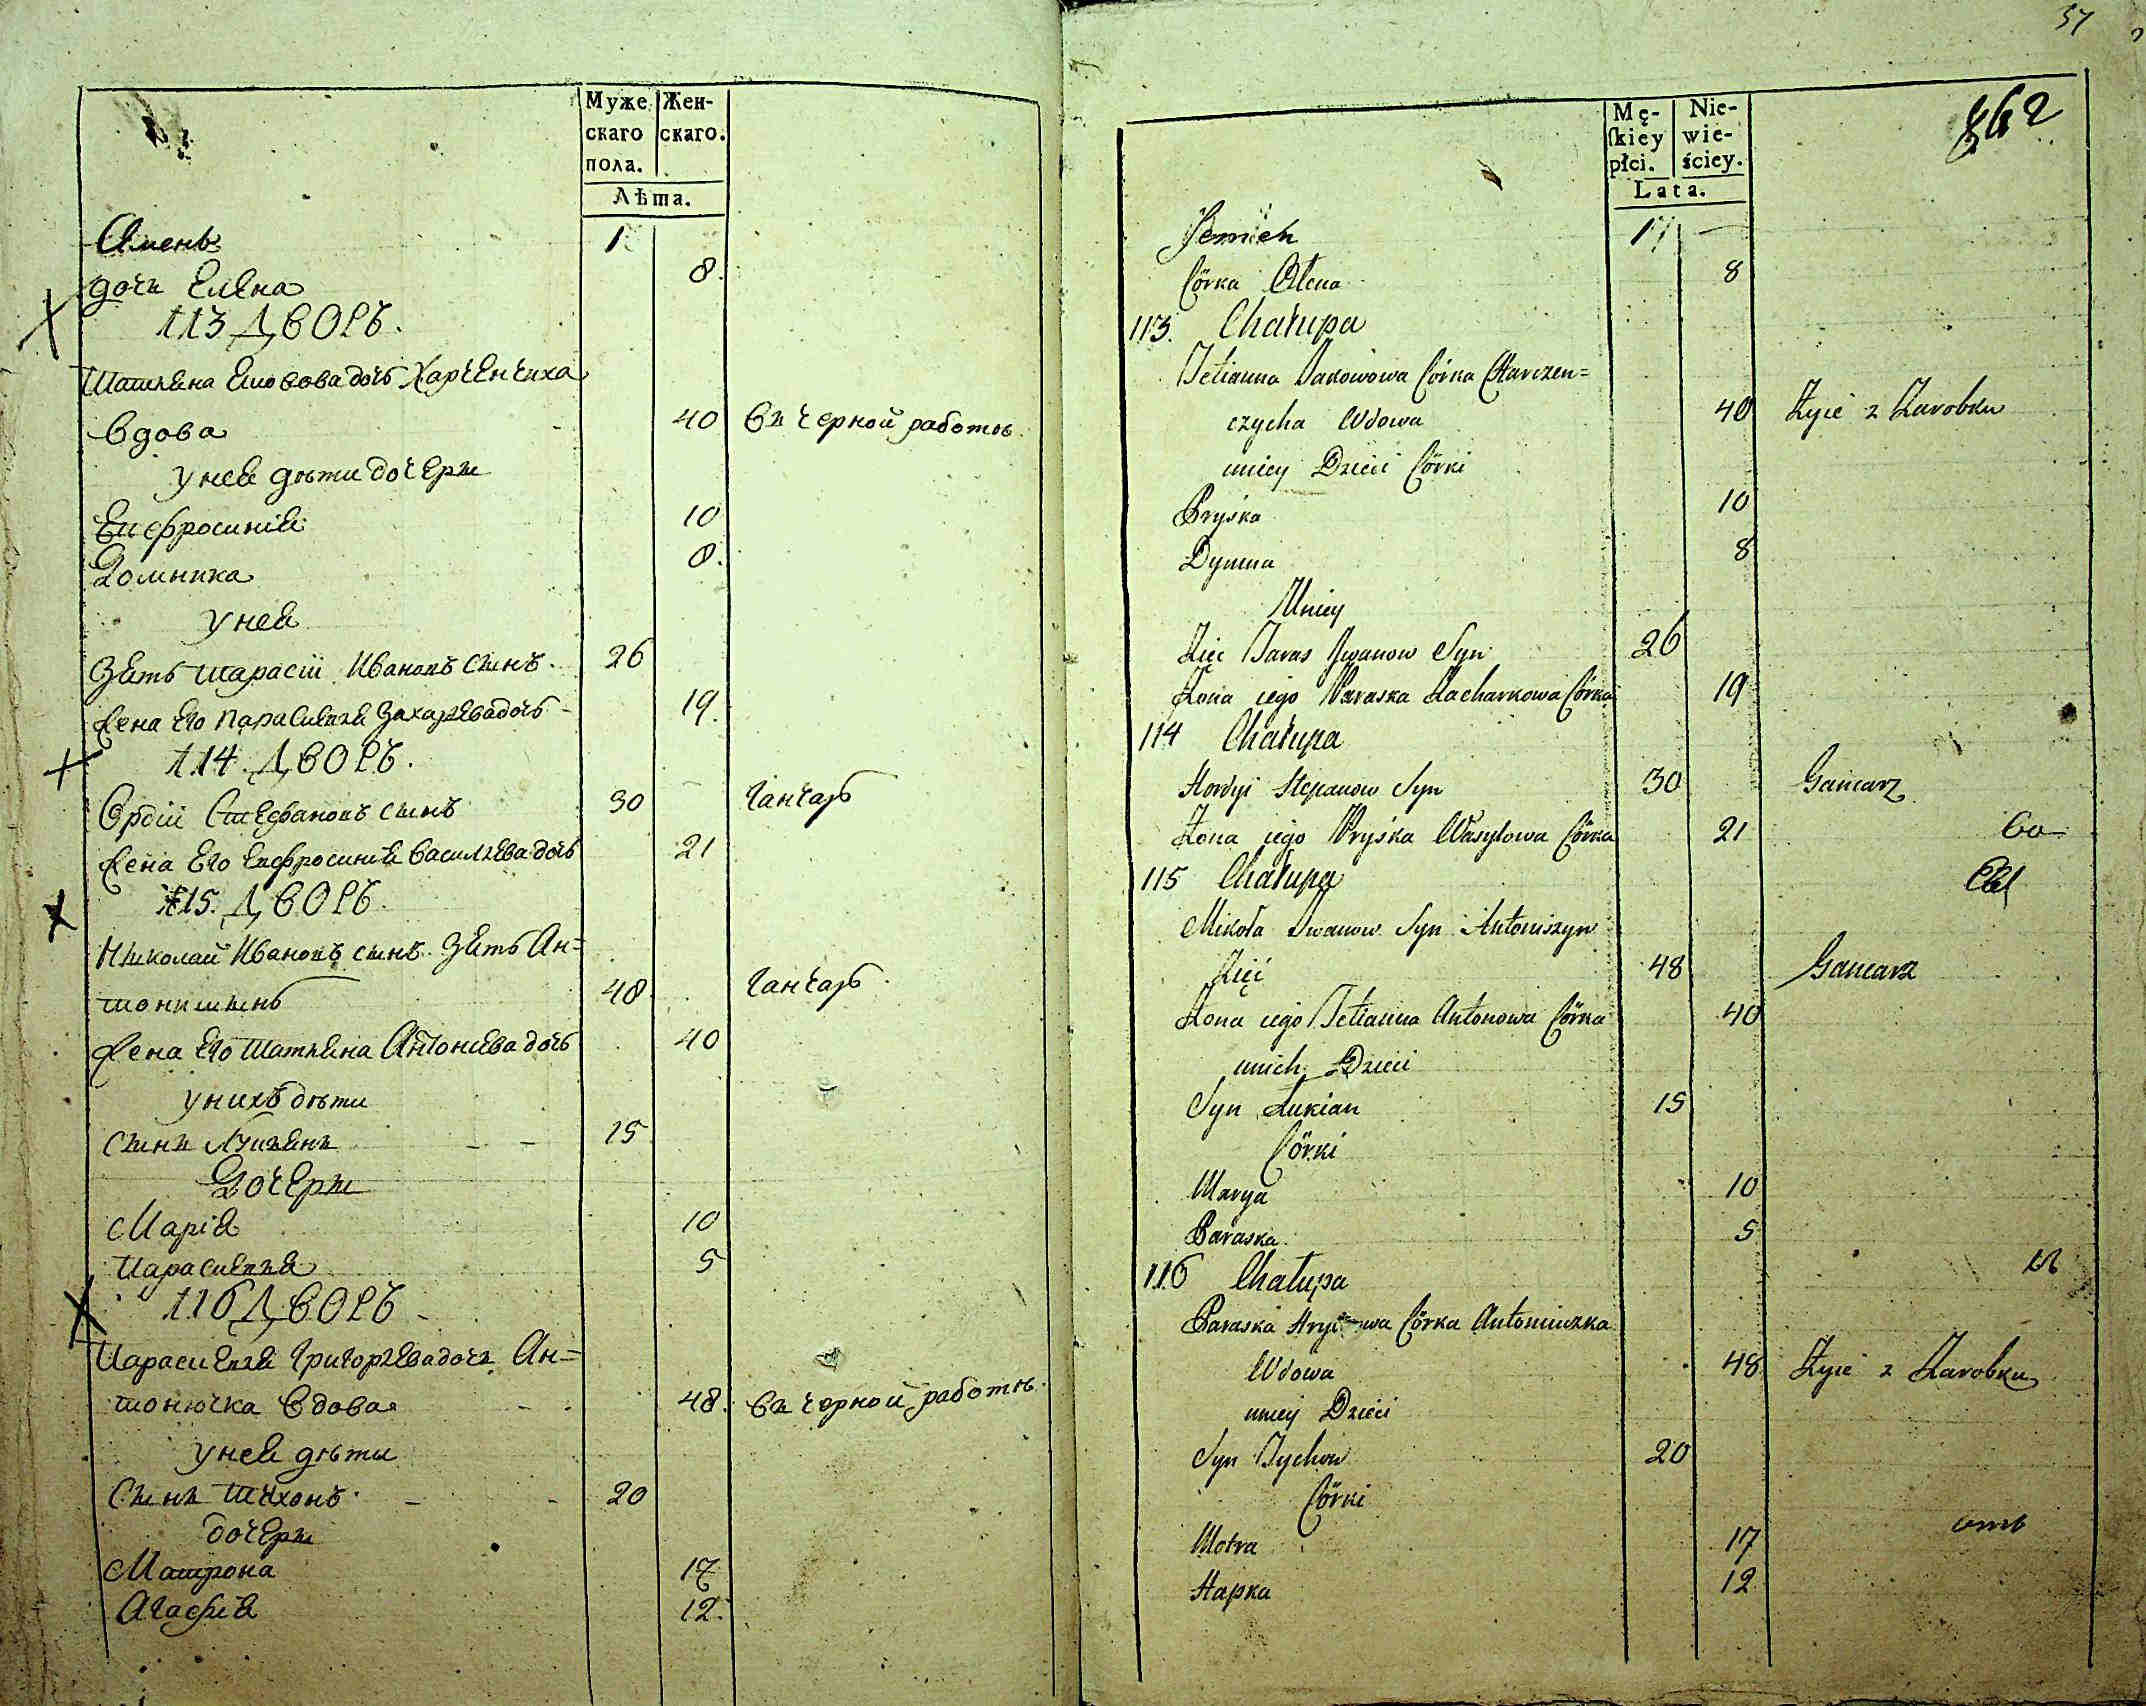 Муже скаго пола.
Жен- скаго.
Лѣта.
Семенъ 1
дочь Елена 8
113 Дворъ.
Татияна Яковова дочь Харченчиха
Вдова 40 въ черной работѣ
у нея дѣти дочери
Евфросиния 10
Домника 8.
у нея
Зять Тарасий Ивановъ сынъ. 26
Жена Его Параскевия Захариева дочь 19.
114. Дворъ.
Ордий Стефановъ сынъ 30 Ганчаръ
Жена Его Евфросиния Василиева дочь 21
115. Дворъ.
Николай Ивановъ сынъ Зять Ан=
тонишинъ 48 Ганчаръ
Жена Его Татияна Антониева дочь 40
у нихъ дѣти
Сынъ Лукиянъ 15
Дочери
Мария 10
Параскевия 5
116 Дворъ
Параскевия Григориева дочь Ан=
тонючка Вдова 48. въ чорной работѣ.
у нея дѣти
Сынъ Тихонъ 20
дочери
Матрона 17
Агафия 12.
57
862
Mę- skiey płci.
Nie- wie- ściey.
Lata.
Semen 1
Córka Ołena 8
113. Chałupa
Tetianna Jakowowa Córka Charczen=
czycha Wdowa 40 Żyie z Zarobku
u niey Dzieci Córki
Pryśka 10
Dymna 8
U niey
Zięć Taras Jwanow Syn 26
Żona iego Paraska Zacharkowa Córka 19
114 Chałupa
Hordyi Stepanow Syn 30 Gancarz
Żona iego Pryśka Wasylowa Córka 21
115 Chałupa
Mikoła Jwanow Syn Antoniszyn
Zięć 48 Gancarz
Żona iego Tetianna Antonowa Córka 40
u nich Dzieci
Syn Łukian 15
Córki
Marya 10
Paraska 5
116 Chałupa
Paraska Córka Antoniuczka
Wdowa 48 Żyie z Zarobku
u niey Dzieci
Syn Tychon 20
Córki
Motra 17
Hapka 12